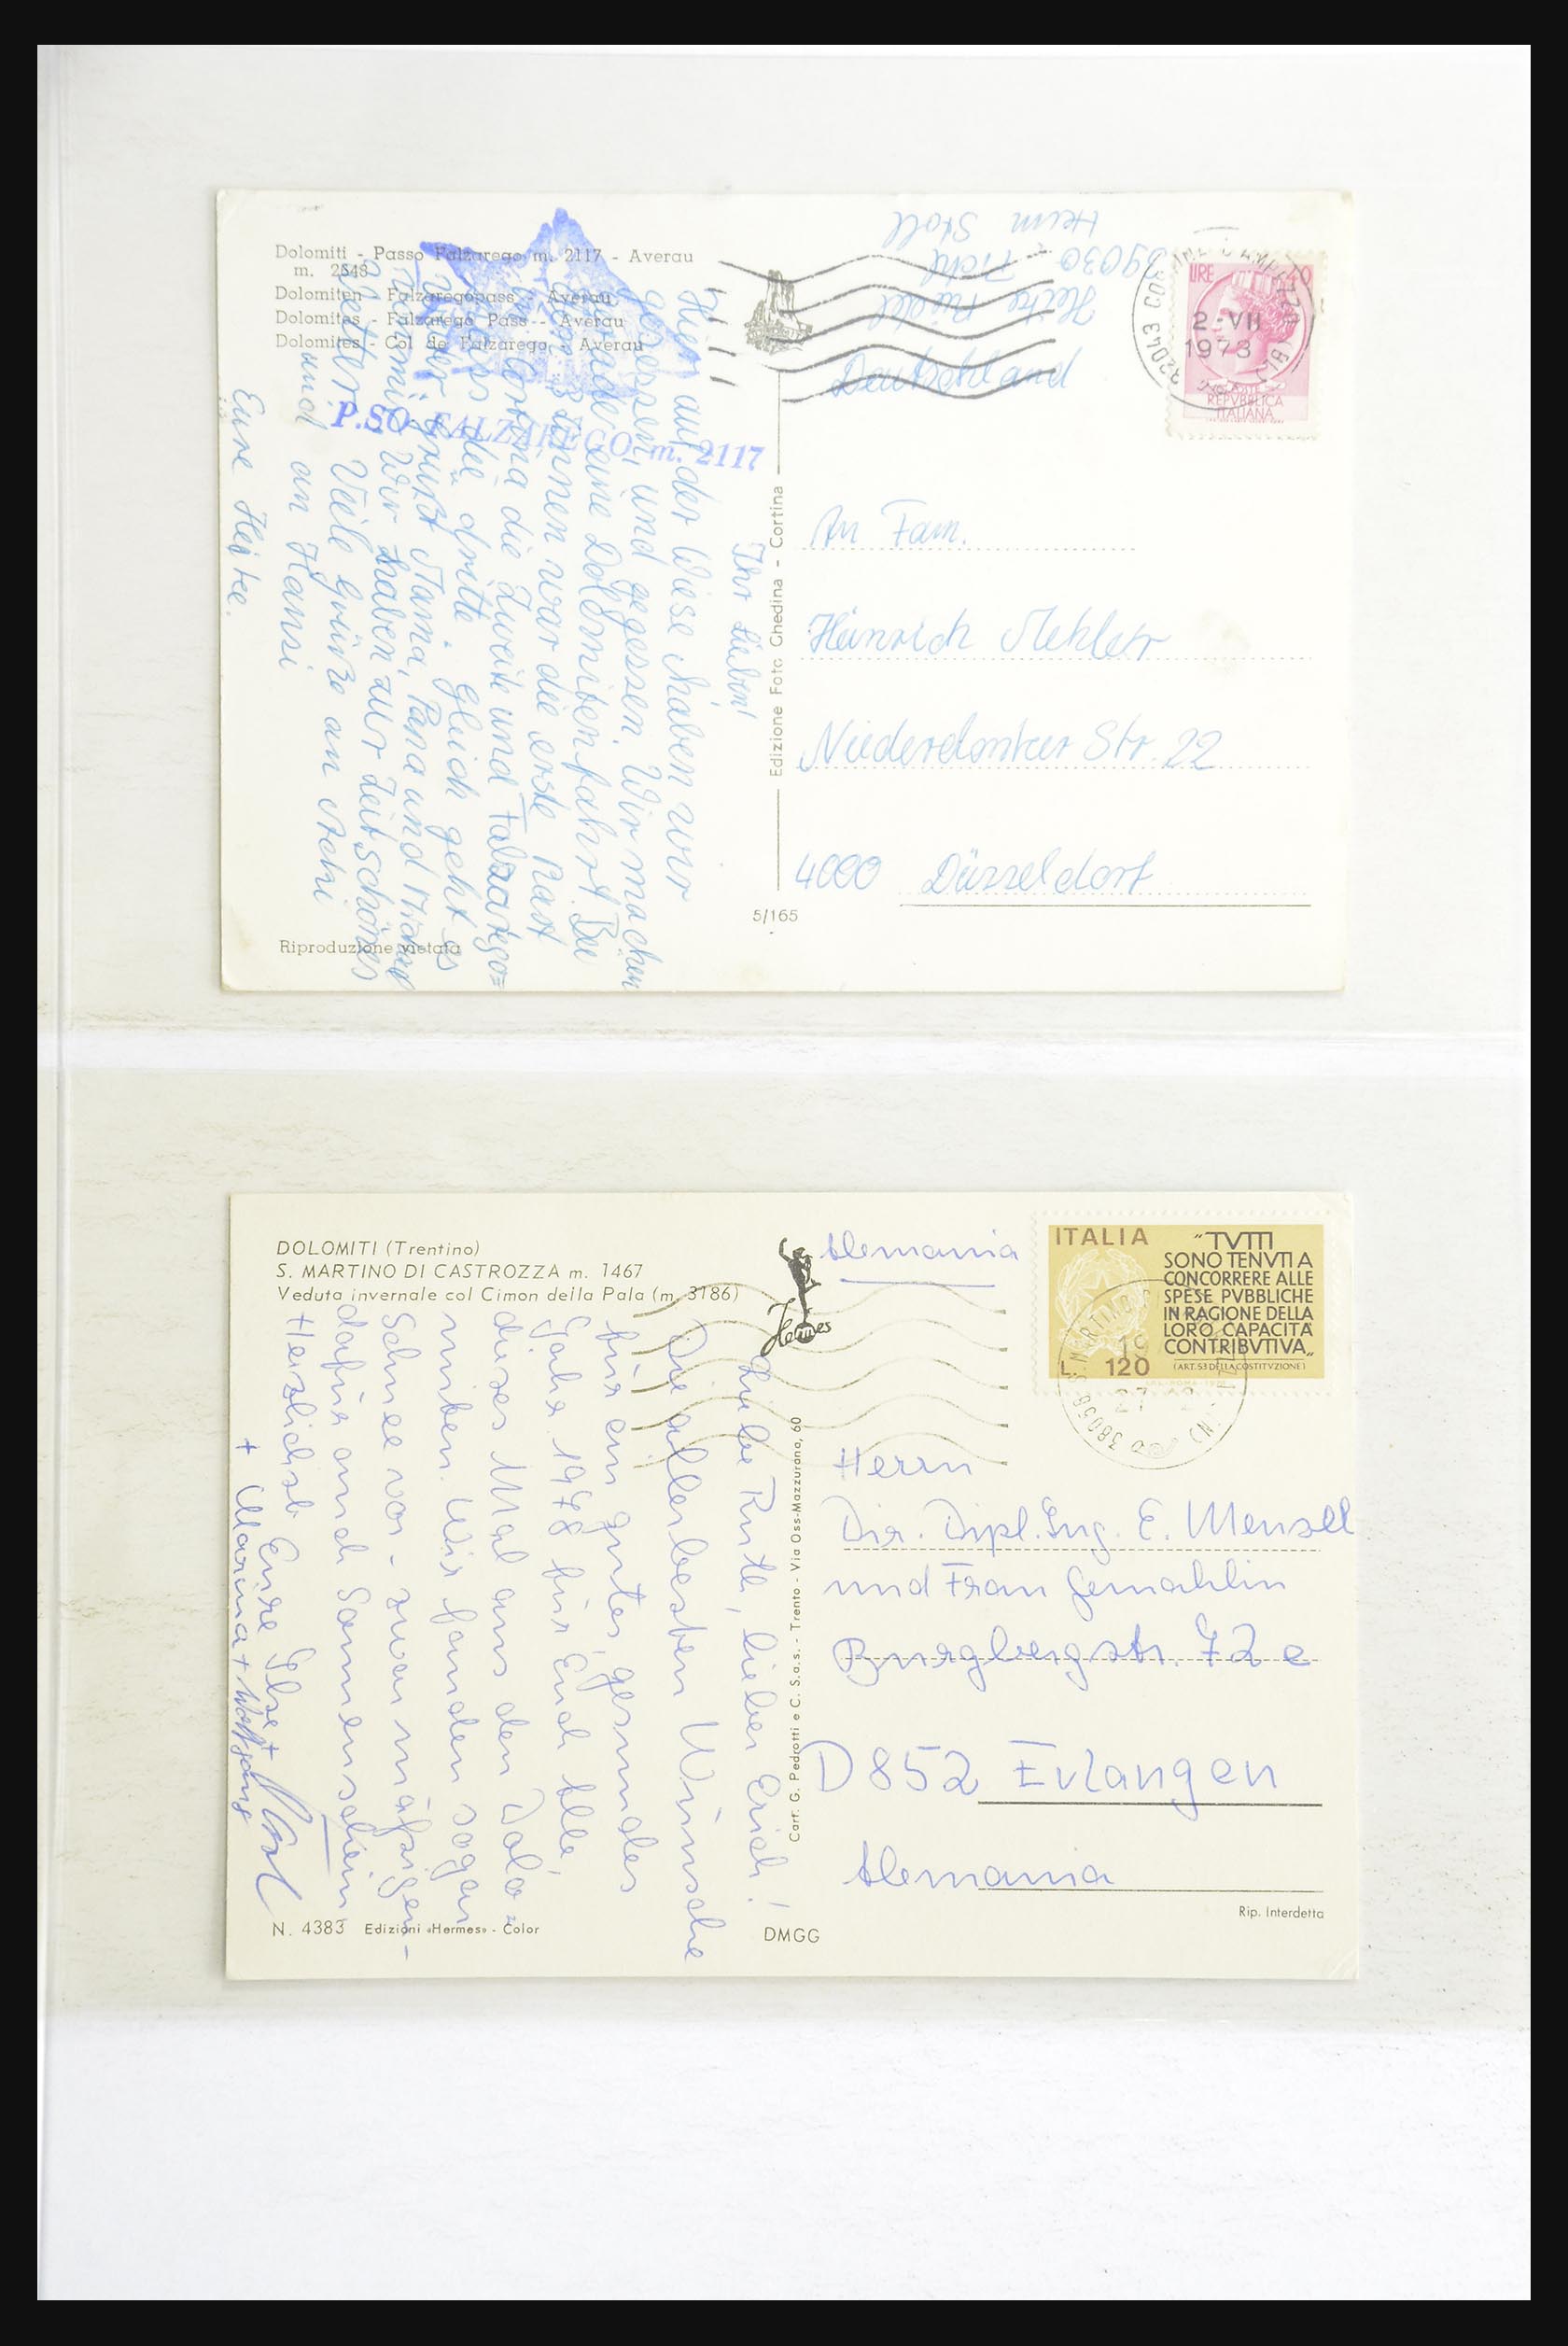 Dolomiti - Passo Falzarego m. 2117 - Averau
m. 2648
Dolomiten - Falzaregopass - Averau
Dolomites - Falzarego Pass - Averau
Dolomites - Col de Falzarego - Averau
P.SO FALZAREGO m. 2117
39030
Heim Stoll
Deutschland
LIRE 40
POSTE
REPVBBLICA
ITALIANA
32043 CORTINA D'AMPEZZO (BL)
2-VII
1973
Ihr Lieben!
Hier auf der Wiese haben wir
gesessen und gegessen. Wir machen
gerade eine Dolomitenfahrt. Bei
war die erste Rast
in Cortina die zweite und Falzarego=
die dritte. Gleich geht es
Mama, Papa und Michael
Wir haben zur Zeit schönes
Wetter. Viele Grüße an
und an Hansi
Eure Heike.
Edizione Foto Ghedina - Cortina
An Fam.
Heinrich Mehler
Niederdonker Str. 22
4000 Düsseldorf
5/165
Riproduzione vietata
DOLOMITI (Trentino)
S. MARTINO DI CASTROZZA m. 1467
Veduta invernale col Cimon della Pala (m. 3186)
Hermes
Alemania
ITALIA
"TVTTI
SONO TENVTI A
CONCORRERE ALLE
SPESE PVBBLICHE
IN RAGIONE DELLA
LORO CAPACITÀ
CONTRIBVTIVA„
(ART. 53 DELLA COSTITVZIONE)
L. 120
38058 S. MARTINO
Liebe Ruth, lieber Erich!
Die allerbesten Wünsche
für ein gutes, gesundes
Jahr 1978 für Euch Alle,
dieses Mal aus den Dolo=
miten. Wir fanden sogar
Schnee vor - zwar mäßigen -
dafür auch Sonnenschein
Herzlichst Eure Ilse +
+ Marina + Wolfgang
Cart. G. Pedrotti e C. S.a.s. - Trento - Via Oss-Mazzurana, 60
Herrn
Dir. Dipl. Ing. E. Menzel
und Frau Gemahlin
Burgbergstr. 72 e
D 852 Erlangen
Alemania
Rip. Interdetta
N. 4383 Edizioni «Hermes» - Color
DMGG